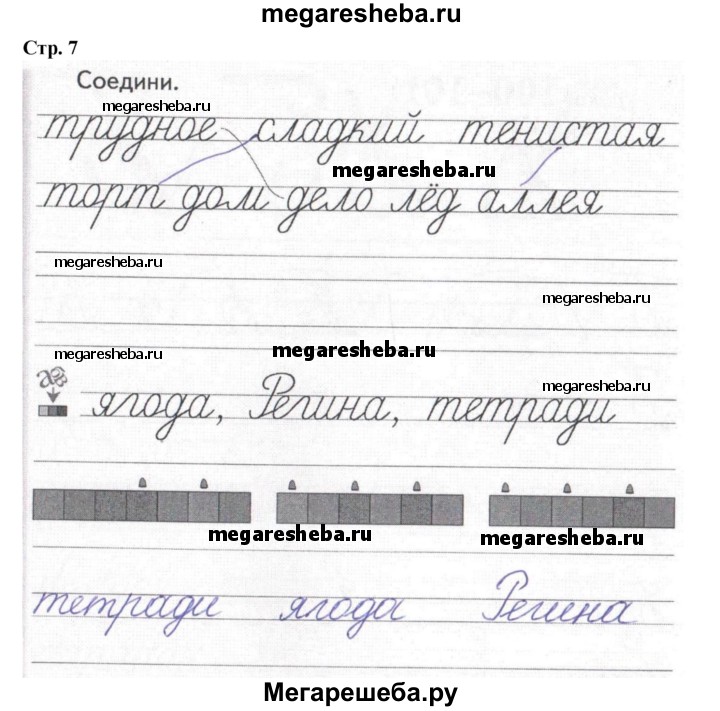 megaresheba.ru
Стр. 7
Соедини.
megaresheba.ru
трудное сладкий тенистая
megaresheba.ru
торт дом дело лёд аллея
megaresheba.ru
megaresheba.ru
megaresheba.ru
megaresheba.ru
аб
megaresheba.ru
ягода, Регина, тетради
megaresheba.ru
megaresheba.ru
тетради ягода Регина
Мегарешеба.ру